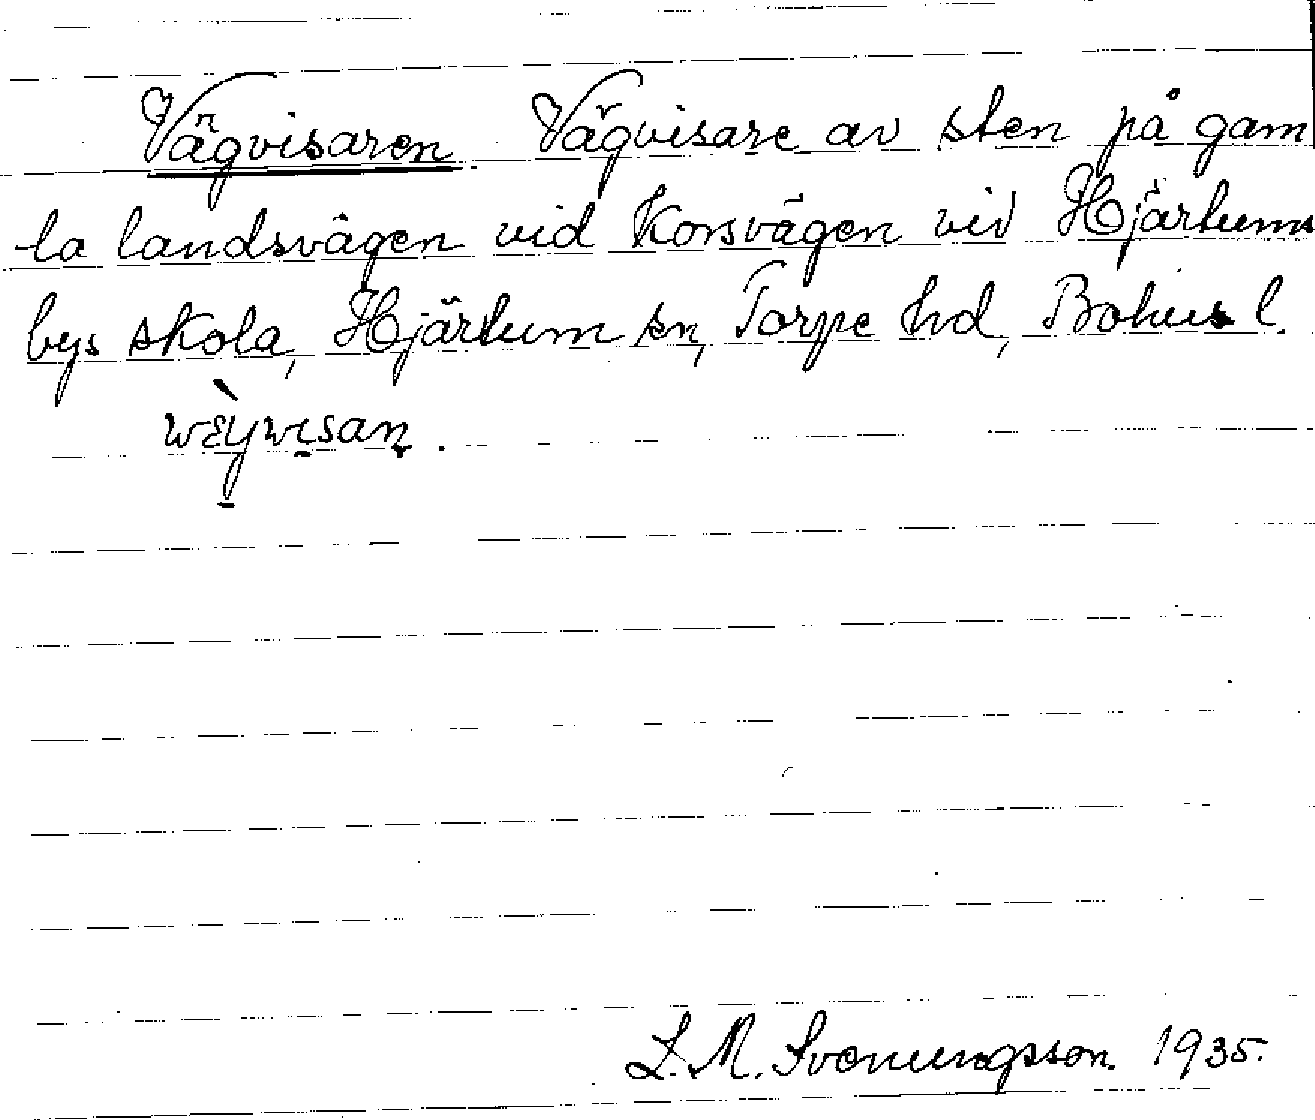 Vägvisaren Vägvisare av sten på gam
la landsvägen vid Korsvägen vid Hjärtums
bys skola, Hjärtum sn, Torpe hd, Bohus l.
wὲywısaṇ.
L. M. Svenungsson. 1935.